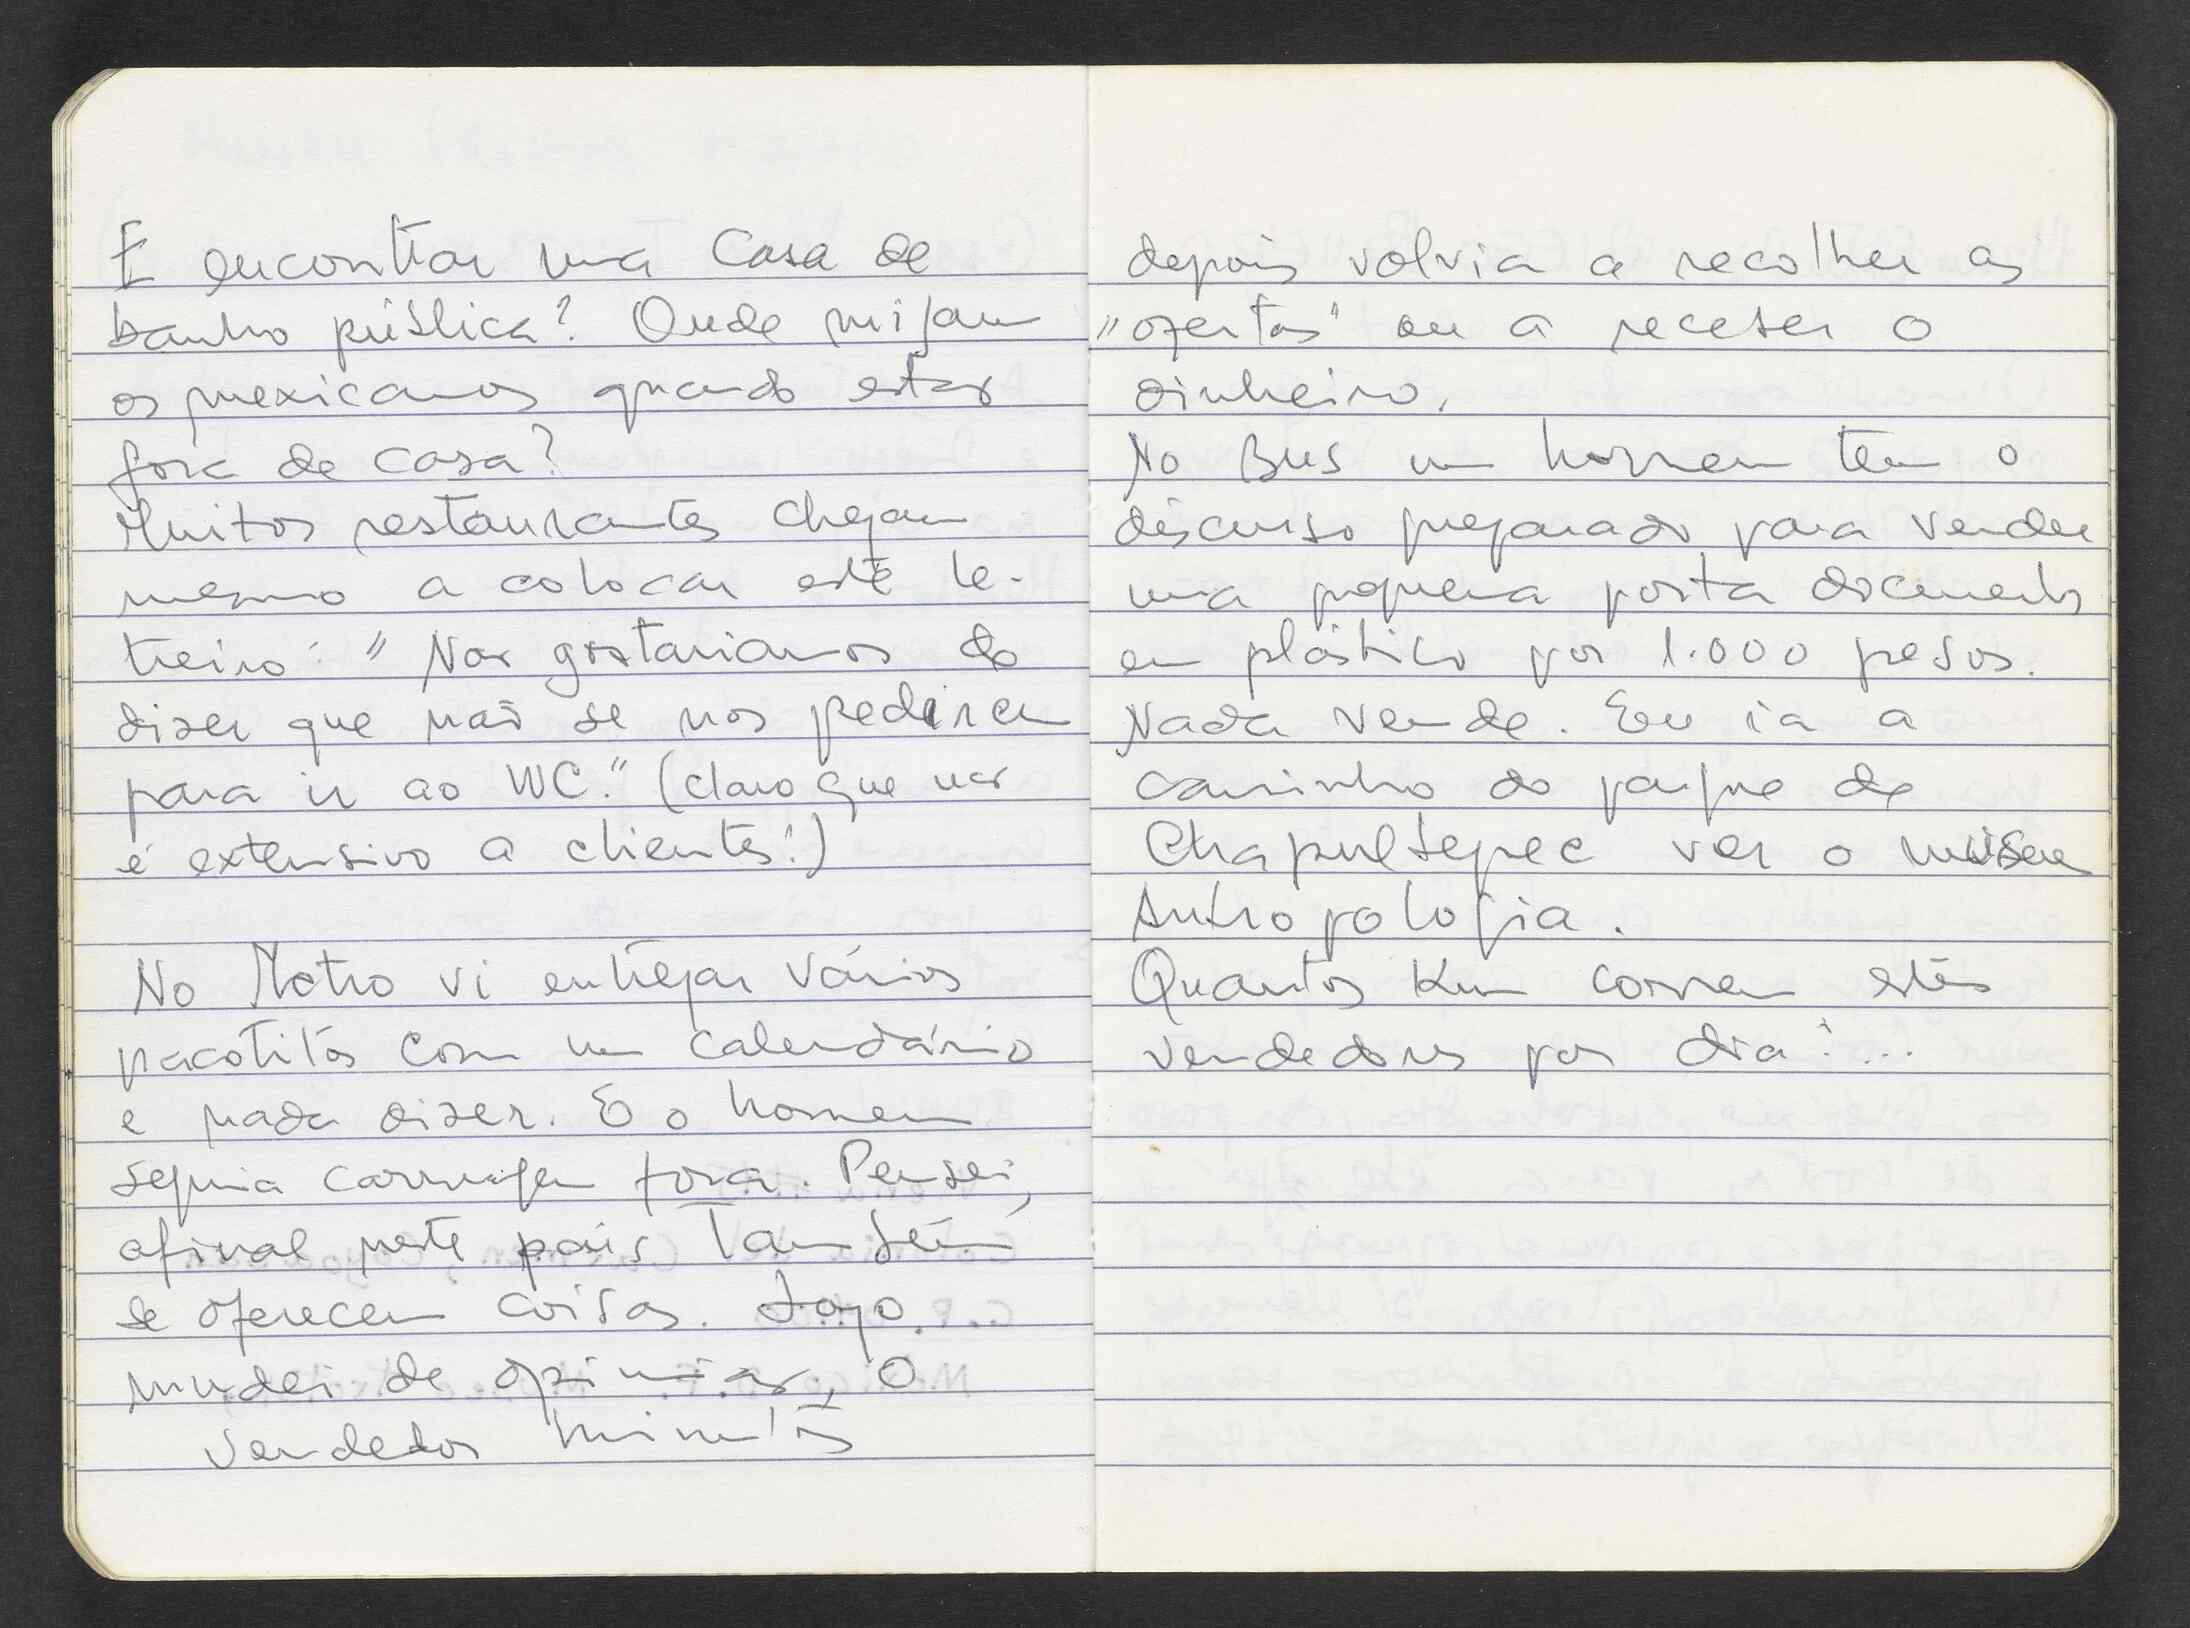 E encontrar uma casa de
banho pública? Onde mijam
os mexicanos quando estão
fora de casa?
Muitos restaurantes chegam
mesmo a colocar este le-
treiro: "Nós gostaríamos de
dizer que não se nos pedirem
para ir ao WC." (claro que não
é extensivo a clientes!)
No Metro vi entregar vários
pacotitos com um calendário
e nada dizer. E o homem
seguia carruagem fora. Pensei,
afinal neste país também
se oferecem coisas. Logo
mudei de opinião, o
vendedor minutos
depois volvia a recolher as
"ofertas" ou a receber o
dinheiro.
No Bus um homem tem o
discurso preparado para vender
uma pequena porta documentos
em plástico por 1.000 pesos.
Nada vende. Eu ia a
caminho do parque de
Chapultepec ver o museu
Antropologia.
Quantos Km correm estes
vendedores por dia?...